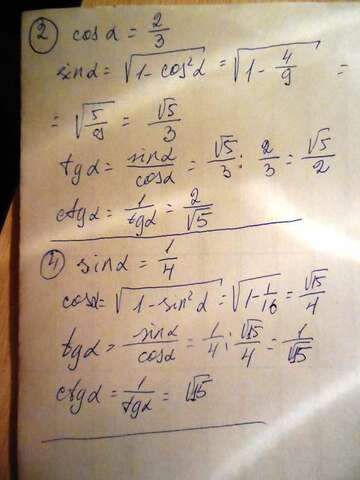 ② cosα = 2/3
sinα = √(1 - cos²α) = √(1 - 4/9) =
= √(5/9) = √5/3
tgα = sinα/cosα = √5/3 : 2/3 = √5/2
ctgα = 1/tgα = 2/√5
④ sinα = 1/4
cosα = √(1 - sin²α) = √(1 - 1/16) = √15/4
tgα = sinα/cosα = 1/4 : √15/4 = 1/√15
ctgα = 1/tgα = √15